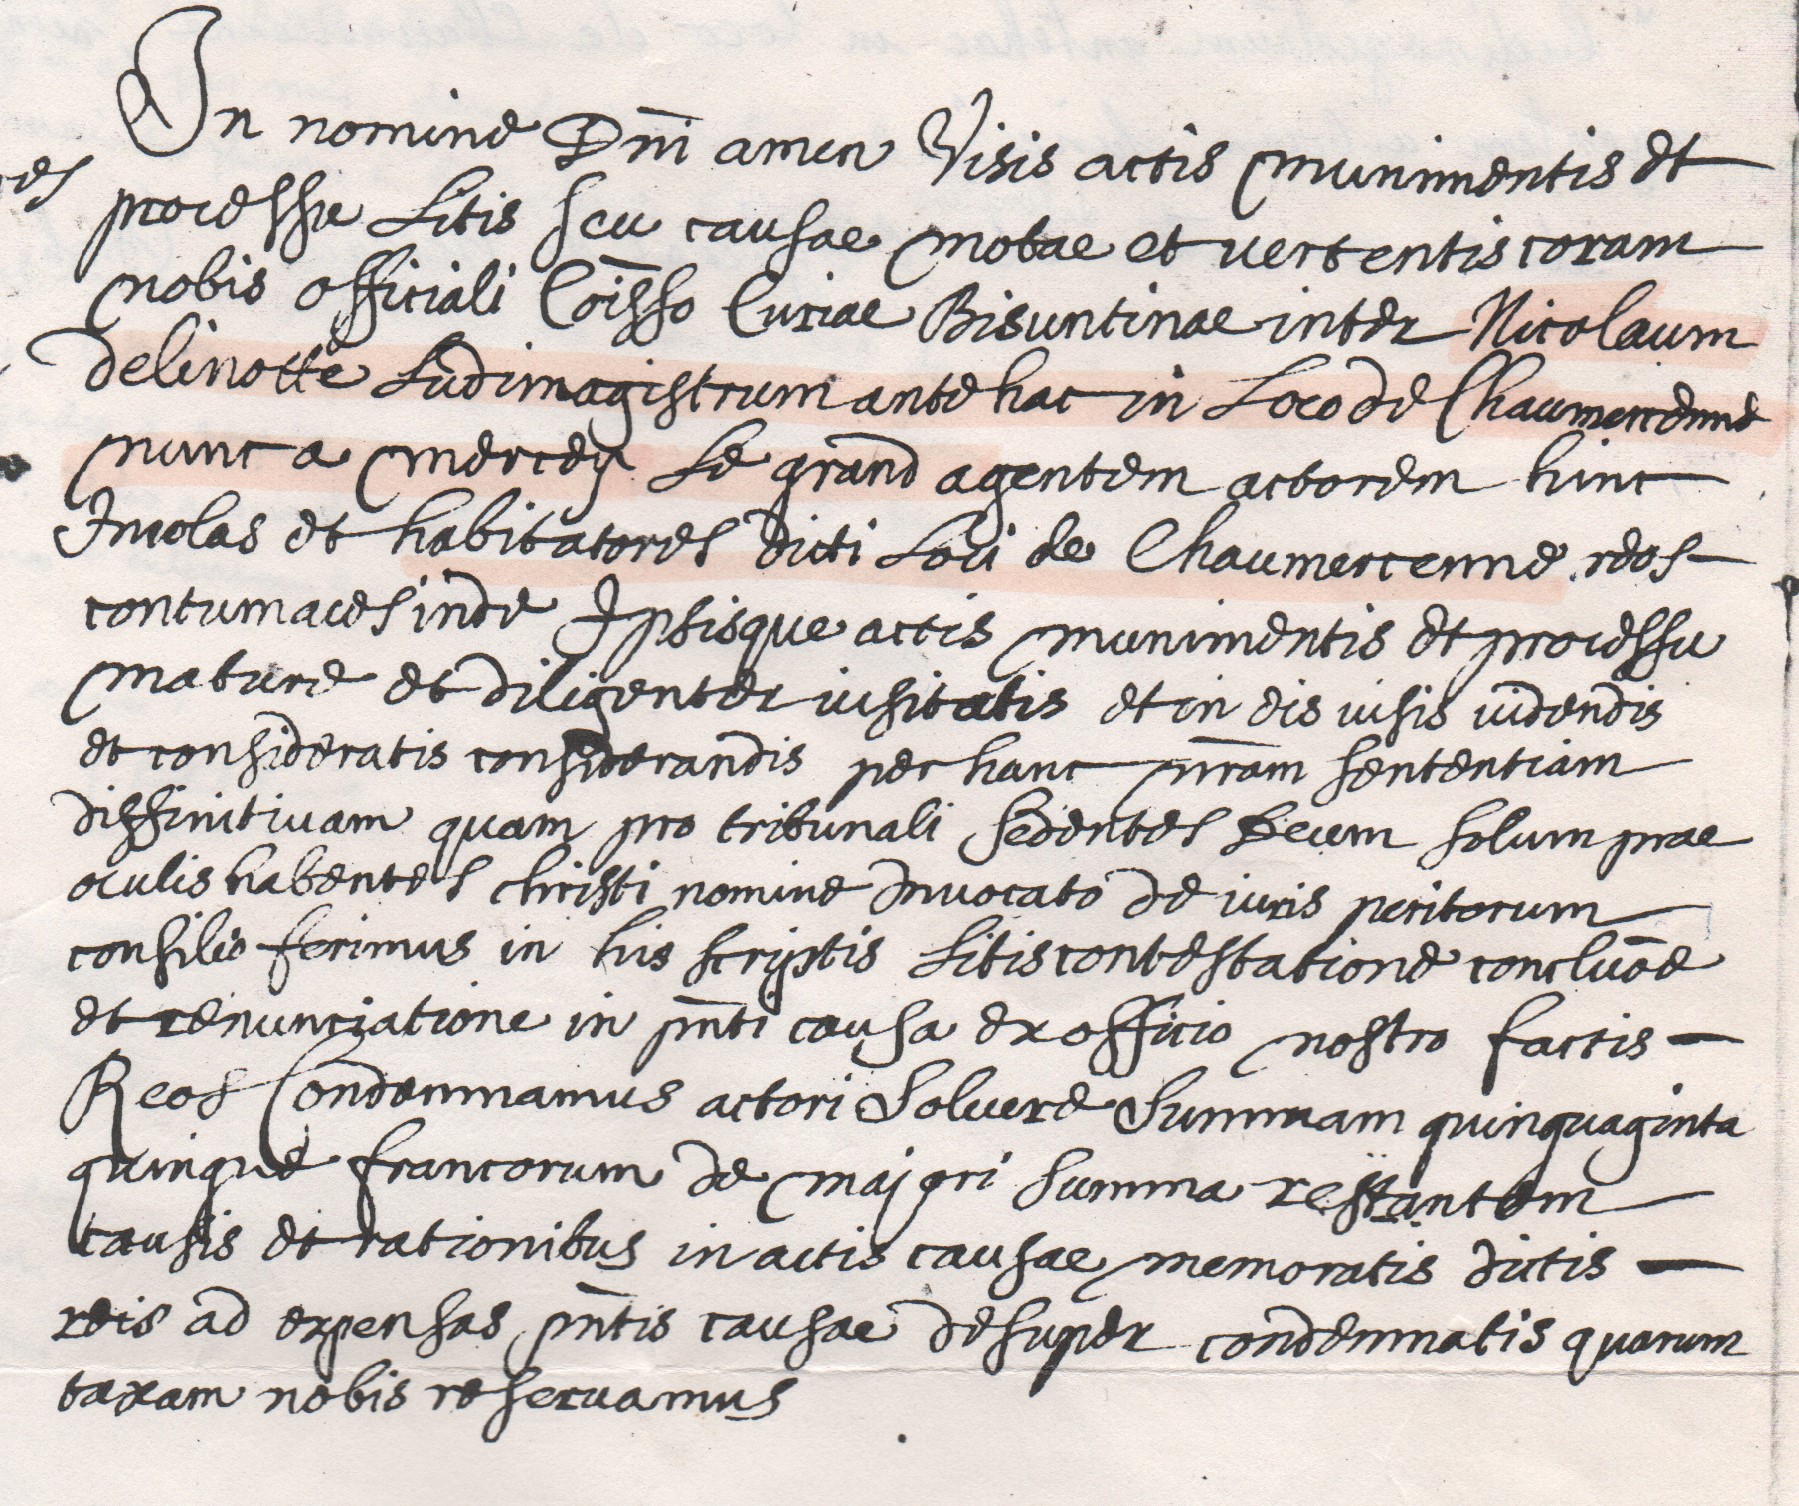 In nomine Dñi amen Visis actis munimentis et
processu Litis seu causae motae et vertentis coram
nobis officiali Coïsso Curiae Bisuntinae inter Nicolaum
delinotte Ludimagistrum antehac in Loco de Chaumercenne
nunc a mercey Le grand agentem actorem hinc
Incolas et habitatores dicti Loci de Chaumercenne reos
contumaces inde Ipsisque actis munimentis et processu
mature et diligenter visitatis et in eis visis videndis
et consideratis considerandis per hanc nr̃am sententiam
diffinitivam quam pro tribunali sedentes Deum solum prae
oculis habentes christi nomine Invocato de iuris peritorum
consilio ferimus in his scriptis Litiscontestatione concluõe
et renunciatione in pñti causa ex officio nostro factis
Reos Condemnamus actori Solvere Summam quinquaginta
quinque francorum de majori summa restantem
causis et rationibus in actis causae memoratis dictis
reis ad expensas pñtis causae desuper condemnatis quarum
taxam nobis reservamus